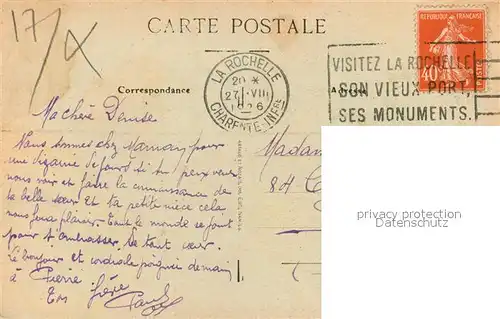 17/X
CARTE POSTALE
REPUBLIQUE FRANÇAISE
40
LA ROCHELLE
20 *
27 - VIII
CHARENTE-INFRE
VISITEZ LA ROCHELLE
SON VIEUX PORT,
SES MONUMENTS.
Correspondance
Ma chère Denise
Nous sommes chez Maman pour
une dizaine de jours si tu peux venir
nous voir et faire la connaissance de
ta belle sœur et ta petite nièce cela
nous fera plaisir. Tout le monde se joint
pour t'embrasser de tout cœur.
Le bonjour et cordiale poignée de main
à Pierre
Ton frère
Paul
Madam
property protection
watermark